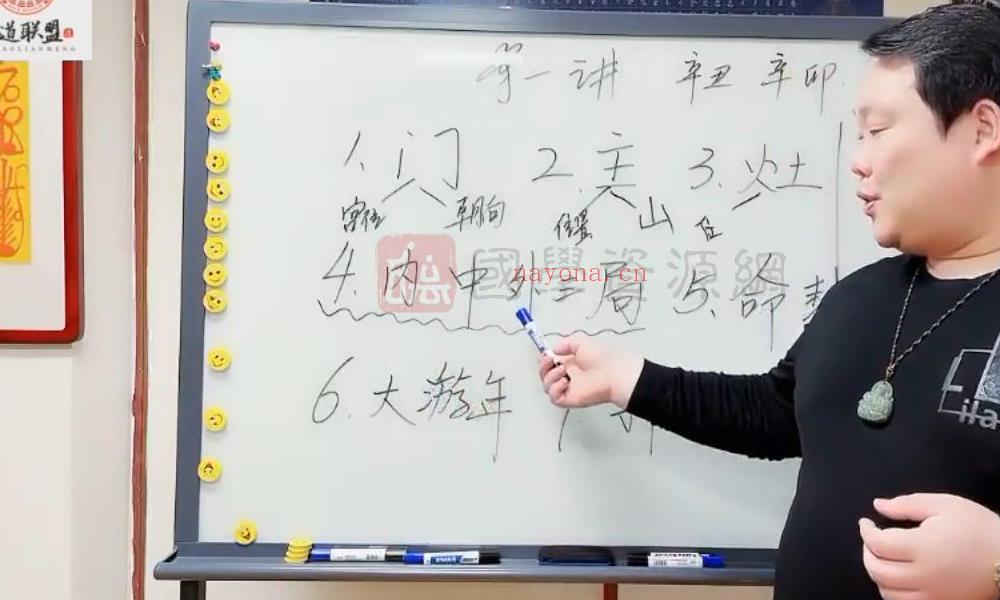 道联盟
AOLIANMENG
第一讲 辛丑 辛卯
1.门 2.主 3.灶
宫位 朝向 位置 山
國學资源網
nayona.cn
4.内中外三局 5.命
6.大游年